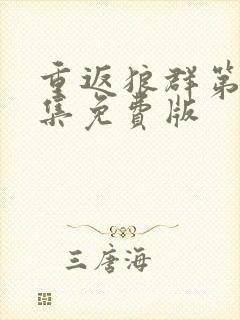 重返狼群第
集免费版
三唐海